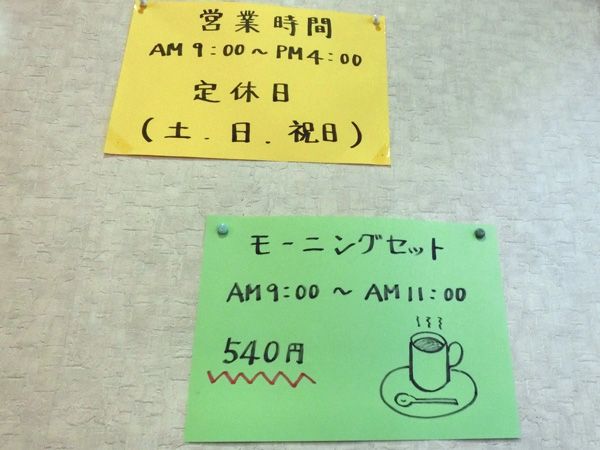 営業時間
AM 9:00～PM4:00
定休日
(土.日.祝日)
モーニングセット
AM9:00～AM11:00
540円